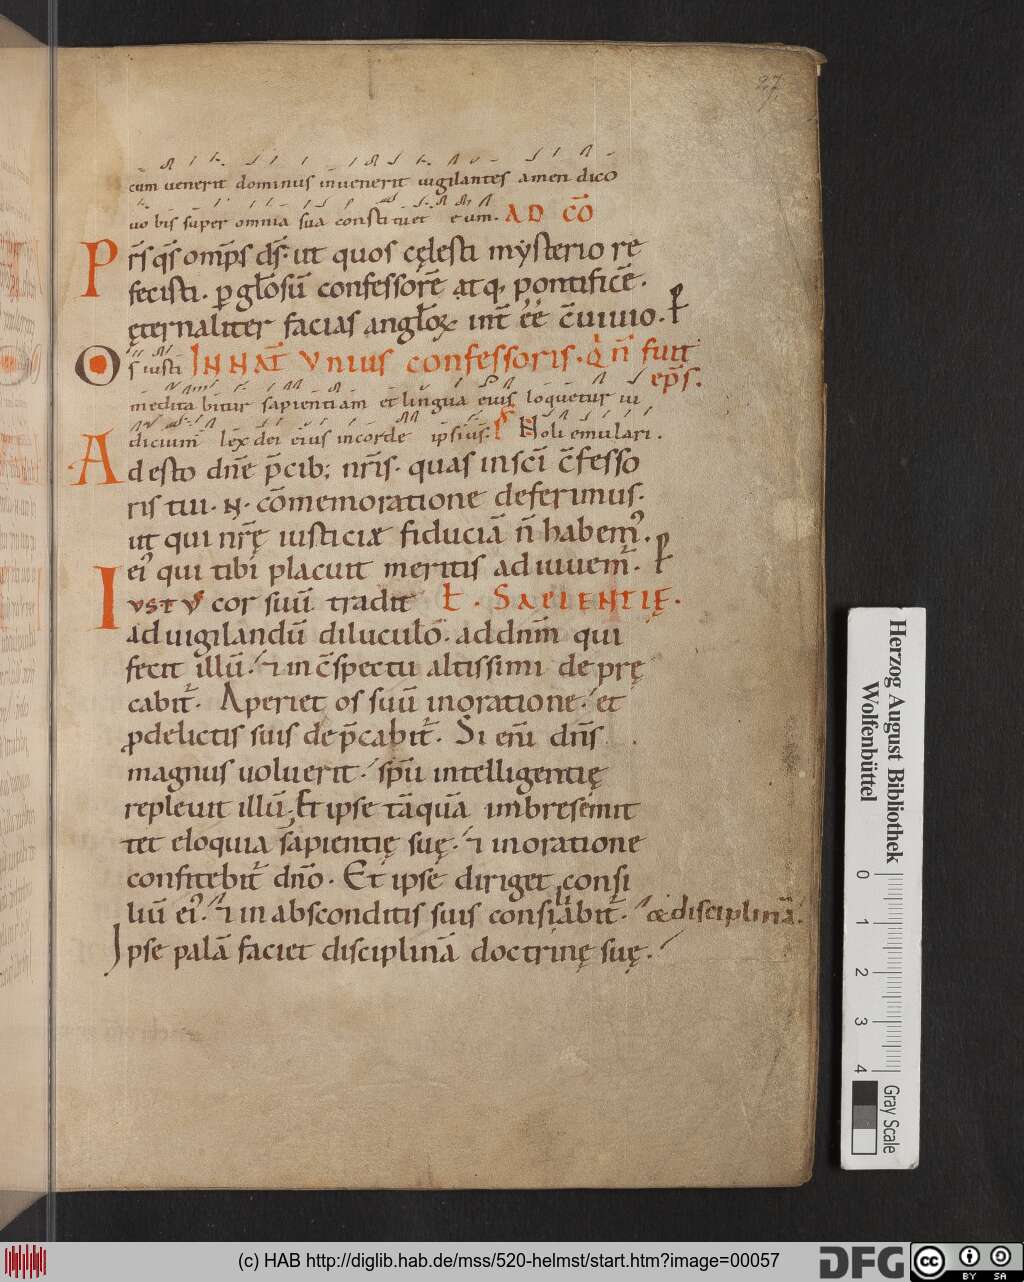 27
cum uenerit dominus inuenerit uigilantes amen dico
uo bis super omnia sua constituet eum. AD Cō
Pr̄s qs̄ omp̄s ds̄. ut quos cęlesti mysterio re
fecisti. p glōsū confessorē atq, pontificē.
ęternaliter facias anglōꝝ int̄ ee c̄uiuio. p
Os iusti IN NAT̄ Unius confessoris. Q n̄ fuit
medita bitur sapientiam et lingua eius loquetur iu
ep̄s.
dicium lex dei eius incorde ipsius. Noli emulari.
Adesto dn̄e p̄cib; nr̄is. quas insc̄i c̄fesso
ris tui. N. cōmemoratione deferimus.
ut qui nr̄ę iusticiæ fiduciā n̄ habem᾽.
ei᾽ qui tibi placuit meritis adiuuem̄. p
Iustus cor suū tradit ł. SAPIENTIĘ.
ad uigilandū diluculo. ad dnm̄ qui
fecit illū. ⁊ in c̄spectu altissimi deprę
cabit̄. Aperiet os suū inoratione. et
ꝓdelictis suis dep̄cabit̄. Si eni᷒ dn̄s
magnus uoluerit. sp̄u intelligentię
repleuit illū. Et ipse tāquā imbresemit
tet eloquia sapientię suę. ⁊ inoratione
confitebit̄ dn̄o. Et ipse diriget consi
liū ei᾽. ⁊ in absconditis suis consiliabit̄. & disciplinā.
Ipse palā faciet disciplinā doctrinę suę.
Herzog August Bibliothek
Wolfenbüttel
0 1 2 3 4
Gray Scale
(c) HAB http://diglib.hab.de/mss/520-helmst/start.htm?image=00057
DFG
cc BY SA